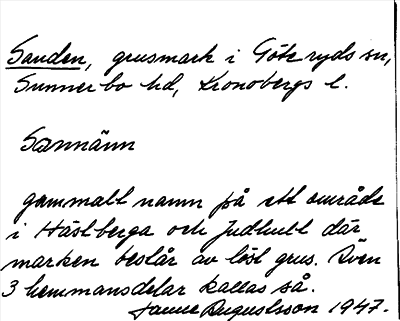 Sanden, grusmark i Göteryds sn,
Sunnerbo hd, Kronobergs l.
Sannänn
gammalt namn på ett område
i Hästberga och Judhult där
marken består av löst grus. Även
3 hemmansdelar kallas så.
Janne Augustsson 1947.